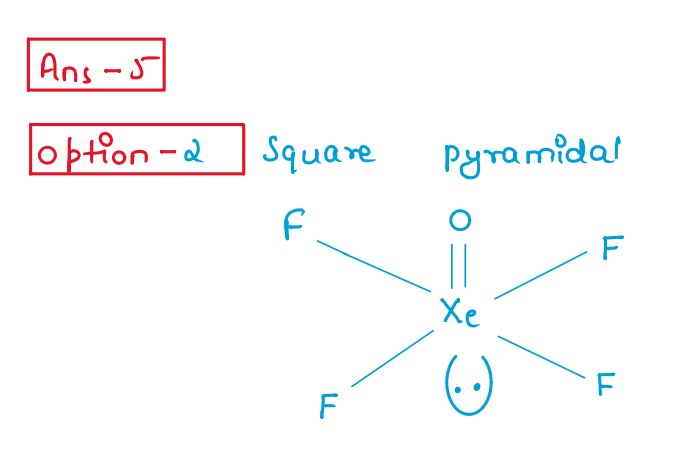 Ans - 5
option - 2 Square pyramidal
F O F
Xe
F F